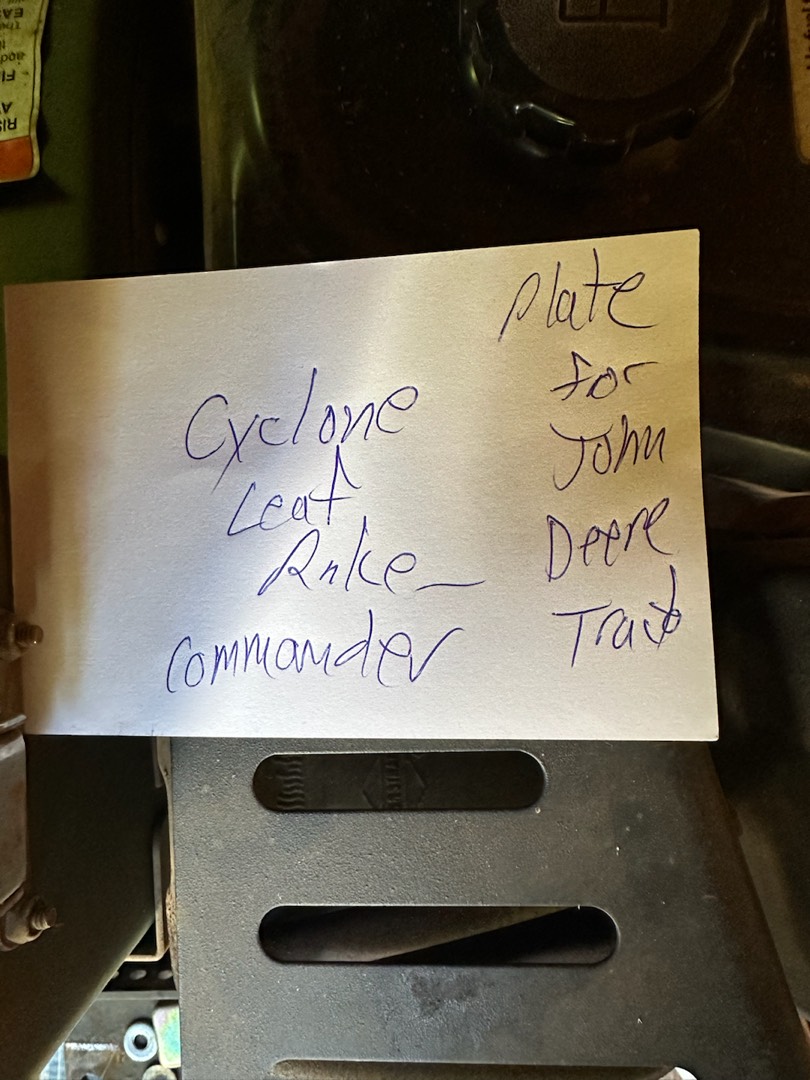 Cyclone
Leaf
Rake_
Commander
Plate
for
John
Deere